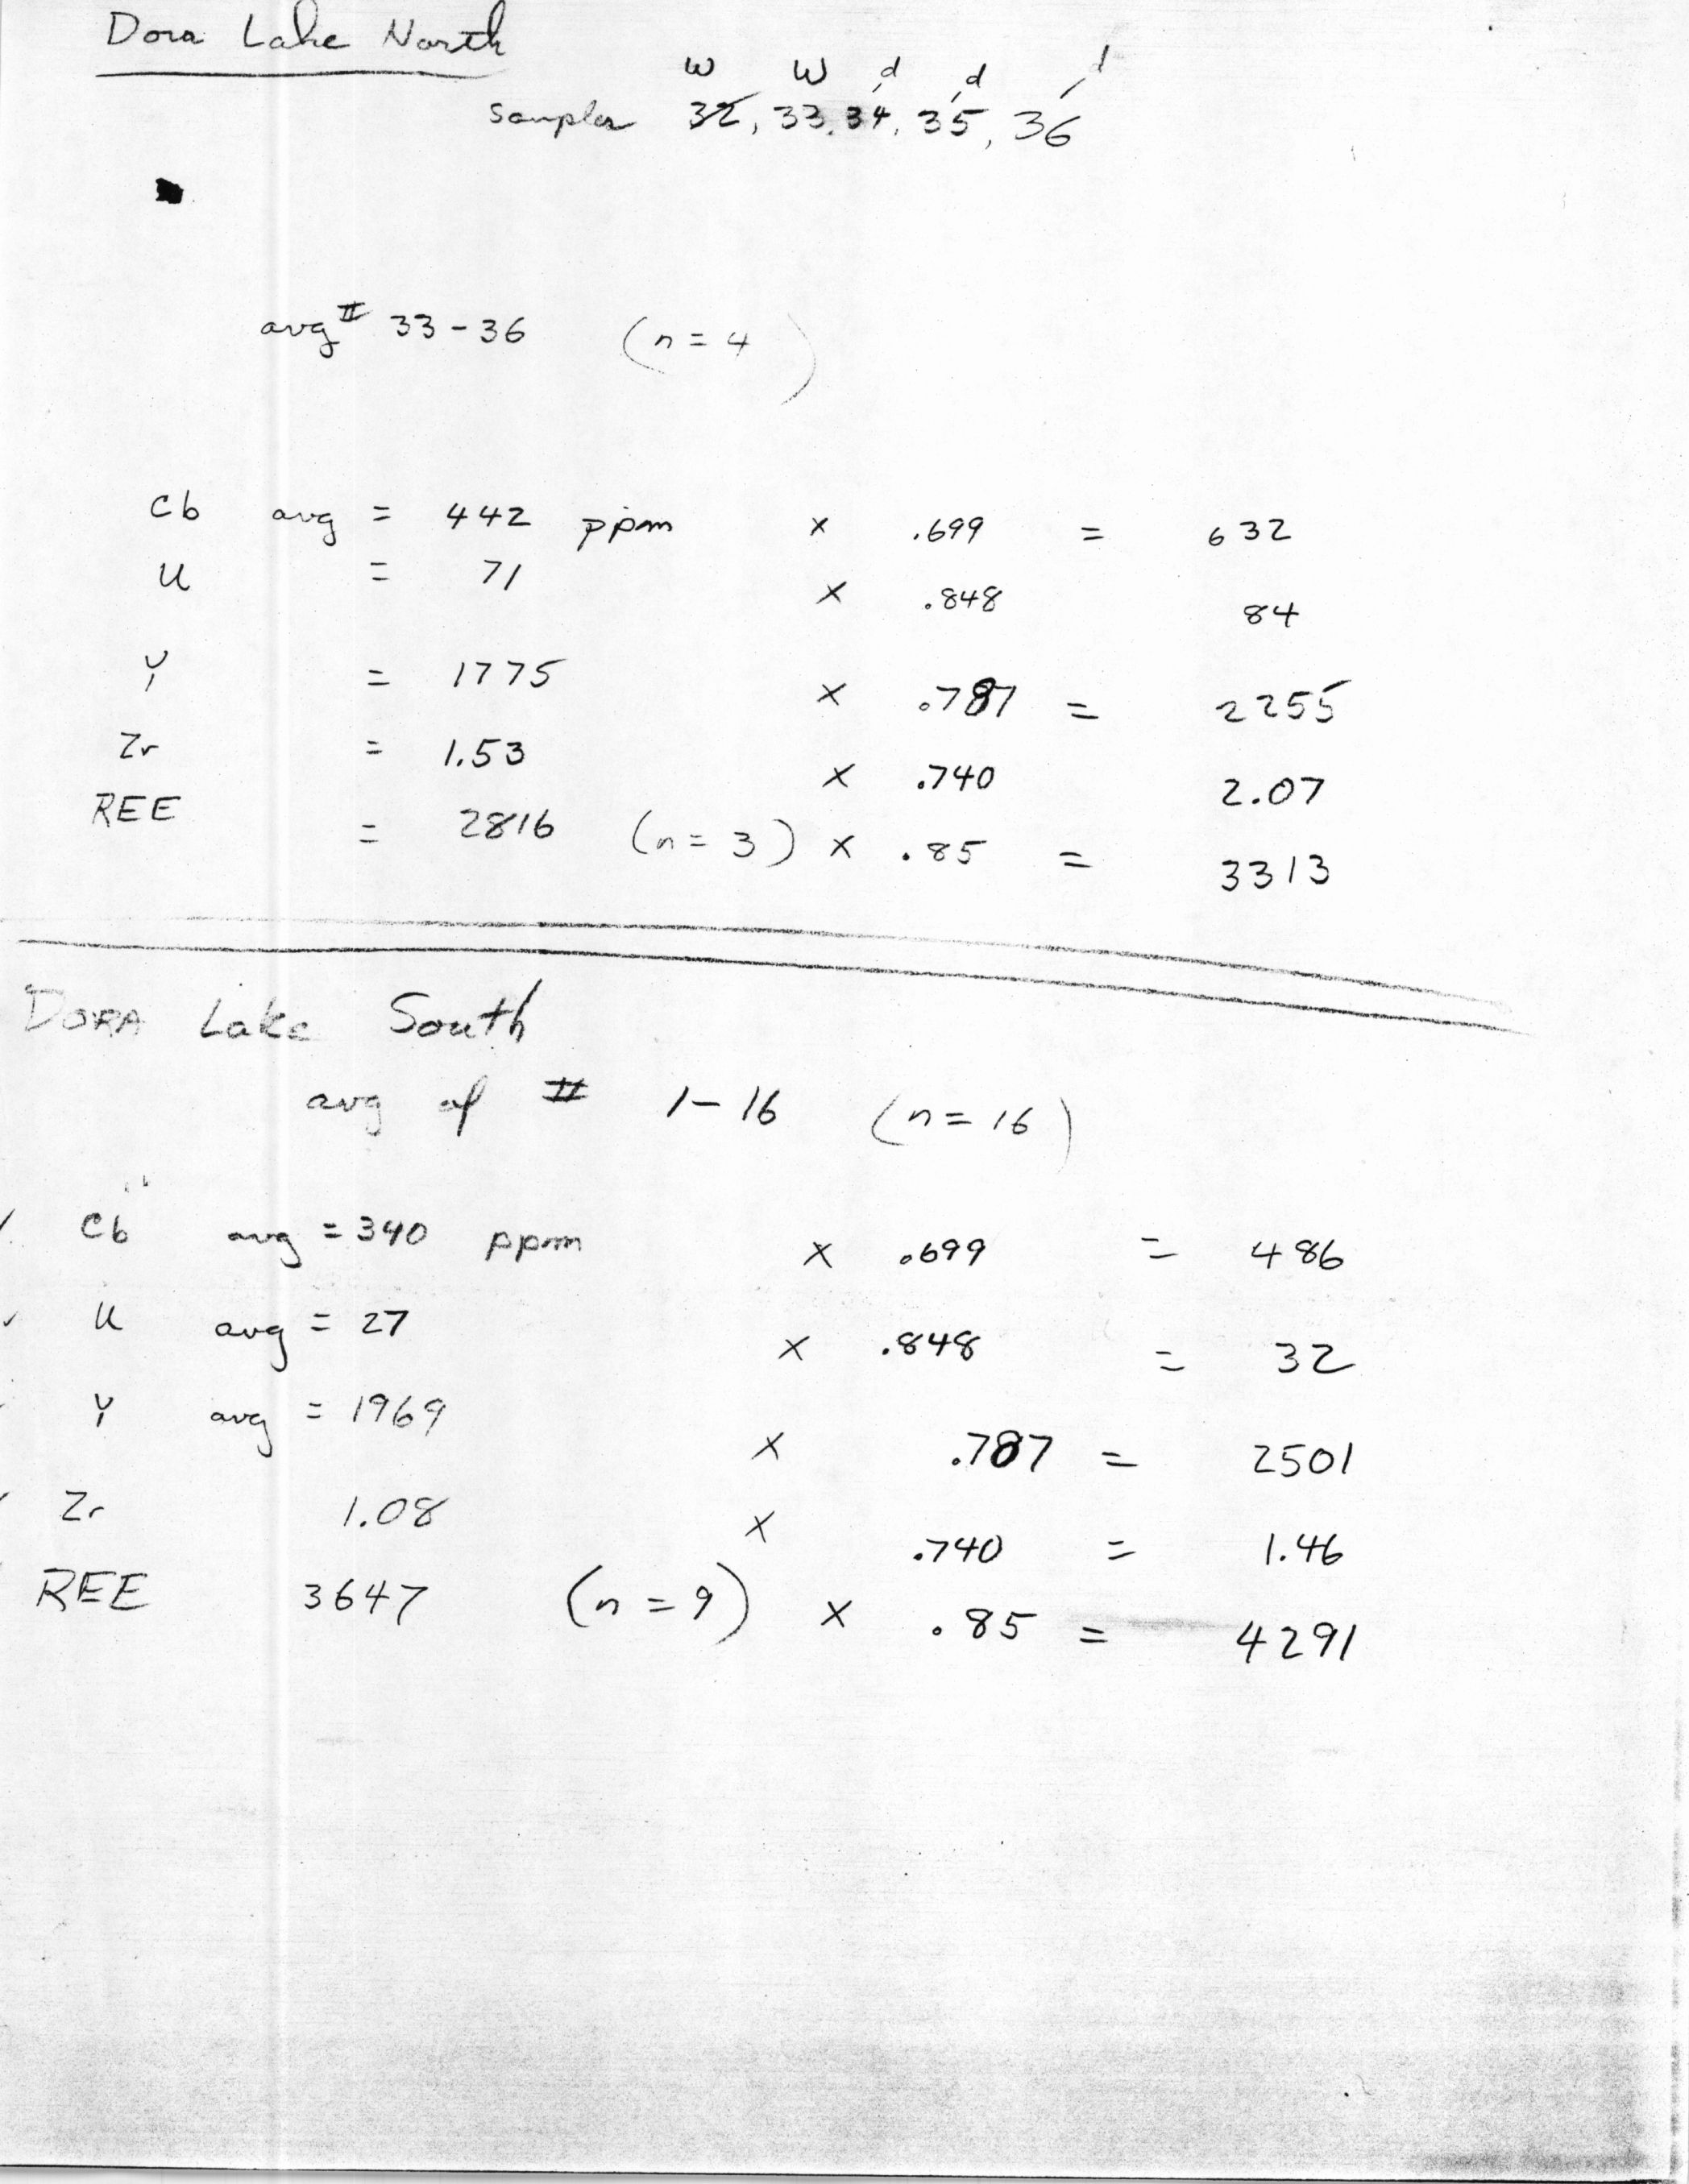 Dora Lake North
W W d d d
samples 32, 33, 34, 35, 36
avg # 33-36 (n = 4)
Cb avg = 442 ppm x .699 = 632
U = 71 x .848 84
Y = 1775 x .787 = 2255
Zr = 1.53 x .740 2.07
REE = 2816 (n = 3) x .85 = 3313
DORA Lake South
avg of # 1-16 (n = 16)
Cb avg = 340 ppm x .699 = 486
U avg = 27 x .848 = 32
Y avg = 1969 x .787 = 2501
Zr 1.08 x .740 = 1.46
REE 3647 (n = 9) x .85 = 4291